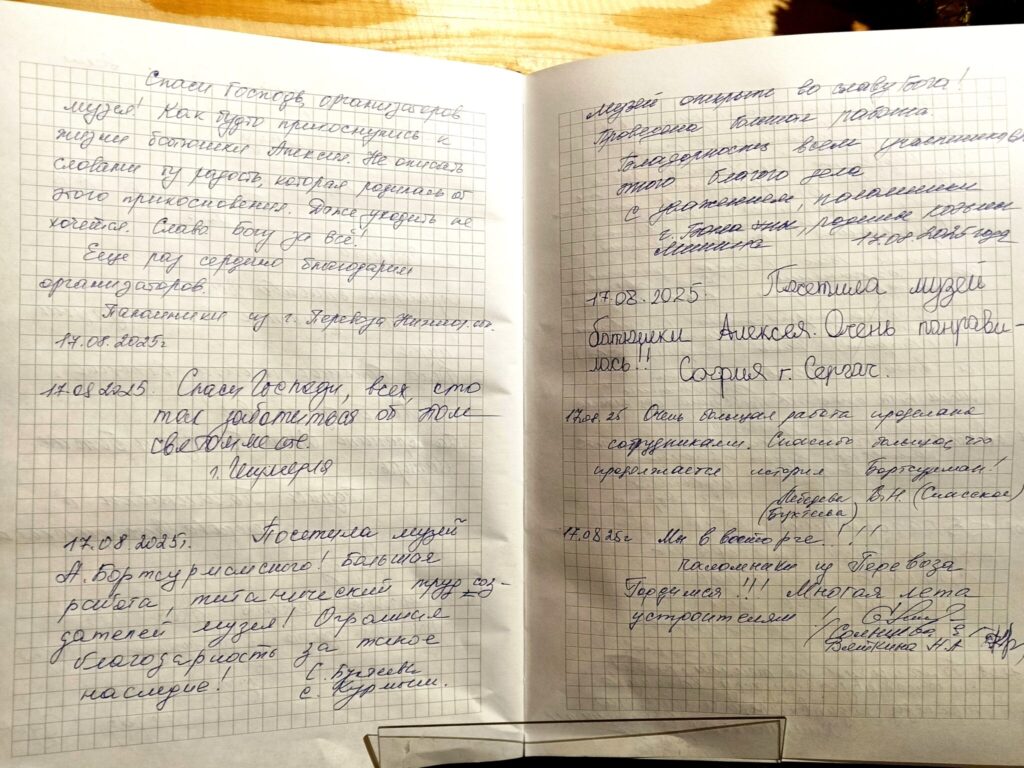 Спаси Господь, организаторов
музея! Как будто прикоснулись к
жизни батюшки Алексия. Не описать
словами ту радость, которая родилась от
этого прикосновения. Даже уходить не
хочется. Слава Богу за всё!
Еще раз сердечно благодарим
организаторов.
Паломники из г. Перевоза
17.08.2025г
17.08.2025. Спаси Господи, всех, кто
так заботиться об этом
святом месте.
г. Шумерля
17.08.2025г. Посетила музей
А. Бортсурманского! Большая
работа, титанический труд соз-
дателей музея! Огромная
благодарность за такое
наследие!
с. Курмыш.
Музей открыт во славу Бога!
Проведена большая работа.
Благадорность всем участникам
этого благого дела
С уважением, паломники
родины Козьмы
Минина 17.08.2025 года
17.08.2025. Посетила музей
батюшки Алексея. Очень понрави-
лось!!
София г. Сергач.
17.08.25 Очень большая работа проделана
сотрудниками. Спасибо большое, что
продолжается история Бортсурман!
Лебедева В.Н. (Спасское)
(Бухтеева)
17.08.25г Мы в восторге!!!
паломники из Перевоза
Гордимся!!! Многая лета
устроителям!
Вяткина Н.А